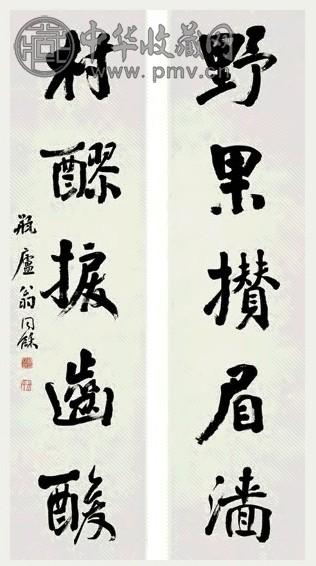 中华收藏网
www.pmv.cn
野果攢眉濇
村醪捩齒酸
瓶廬翁同龢